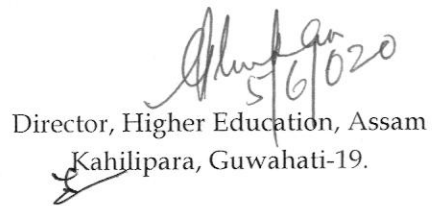 5/6/020
Director, Higher Education, Assam
Kahilipara, Guwahati-19.